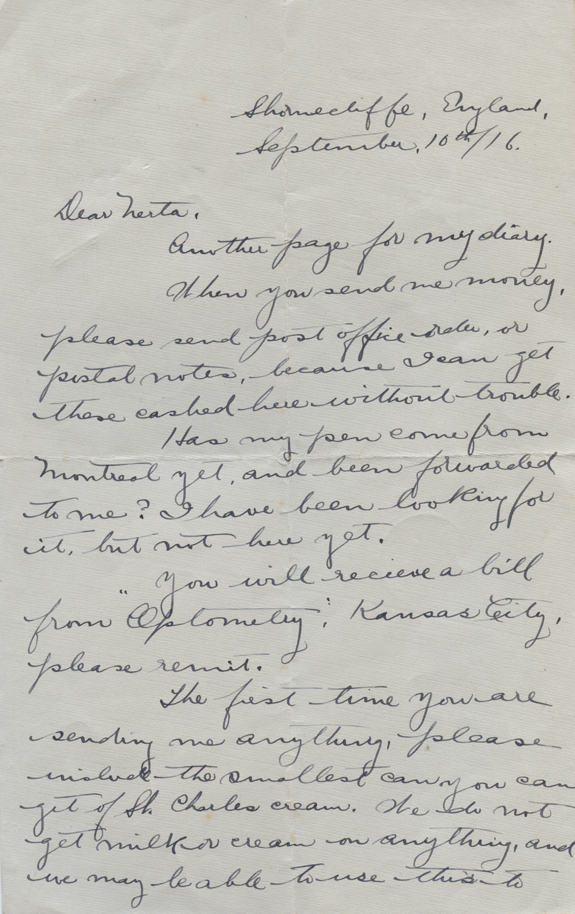 Shorncliffe, England,
September, 10th/16.
Dear Nerta.
Another page for my diary.
When you send me money,
please send post office order, or
postal notes, because I can get
these cashed here without trouble.
Has my pen come from
Montreal yet, and been forwarded
to me? I have been looking for
it, but not here yet.
You will recieve a bill
from "Optometry", Kansas City,
please remit.
The first time you are
sending me anything, please
the smallest can you can
get of St. Charles cream. We do not
get milk or cream on anything, and
we may be able to use this to